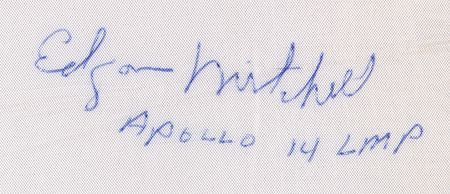 Edgar Mitchell
APOLLO 14 LMP